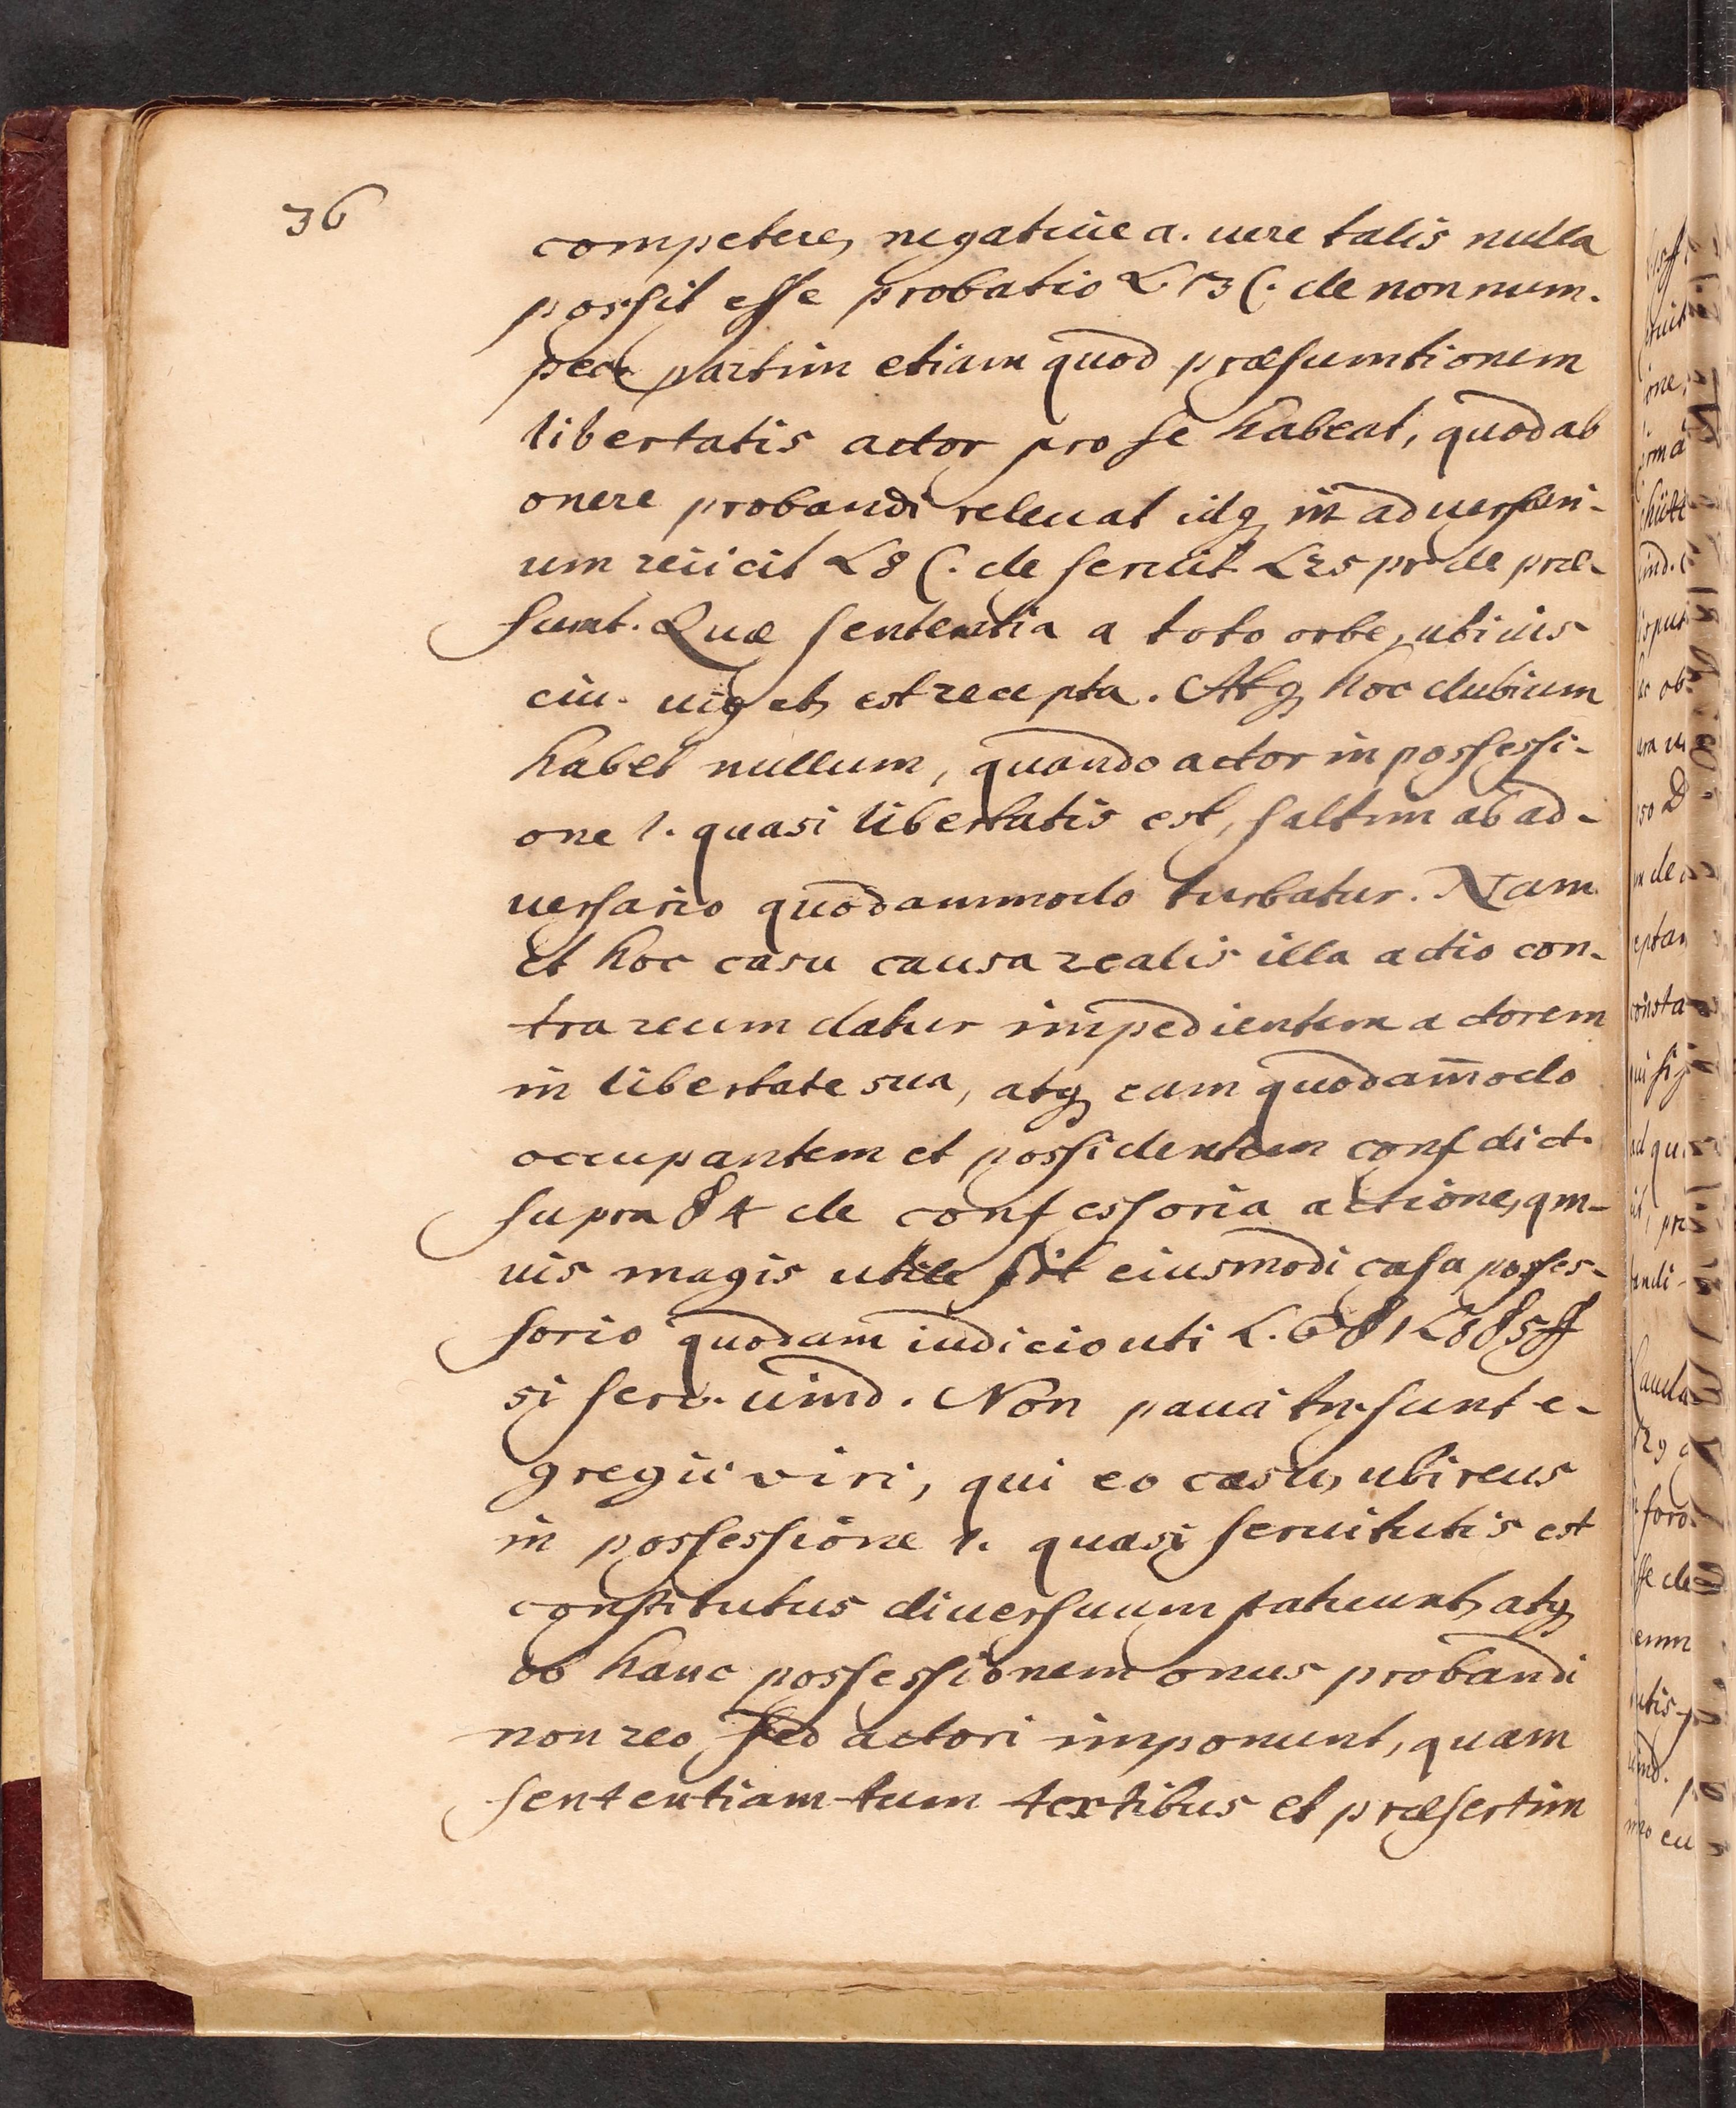 36
competere, negatiue a. uere talis nulla
possit esse probatio L 13 C. de non num.
pec partim etiam quod præsumtionem
libertatis actor pro se habeat, quod ab
onere probandi releuat idq in aduersari-
um reiicit L 8 C. de seruit L 25 pr de præ-
sumt. Quæ sententia a toto orbe, ubi ius
ciu. uiget, est recepta. Atq hoc dubium
habet nullum, quando actor in possessi-
one l. quasi libertatis est, saltim ab ad-
uersario quodammodo turbatur. Nam
et hoc casu causa realis illa actio con-
tra reum datur impedientem actorem
in libertate sua, atq eam quodam̄odo
occupantem et possidentem conf dict.
supra § 4 de confessoria actione, qm-
uis magis utile sit eiusmodi casa posses-
sorio quodam iudicio uti L. 6 § 1 L 8 § 5 ff
si seru. uind. Non pauci tn. sunt e-
gregii viri, qui eo casu, ubi reus
in possessione l. quasi seruitutis est
constitutus diuersuum statuunt, atq
ob hanc possessionem onus probandi
non reo sed actori imponunt, quam
sententiam tum textibus et præsertim